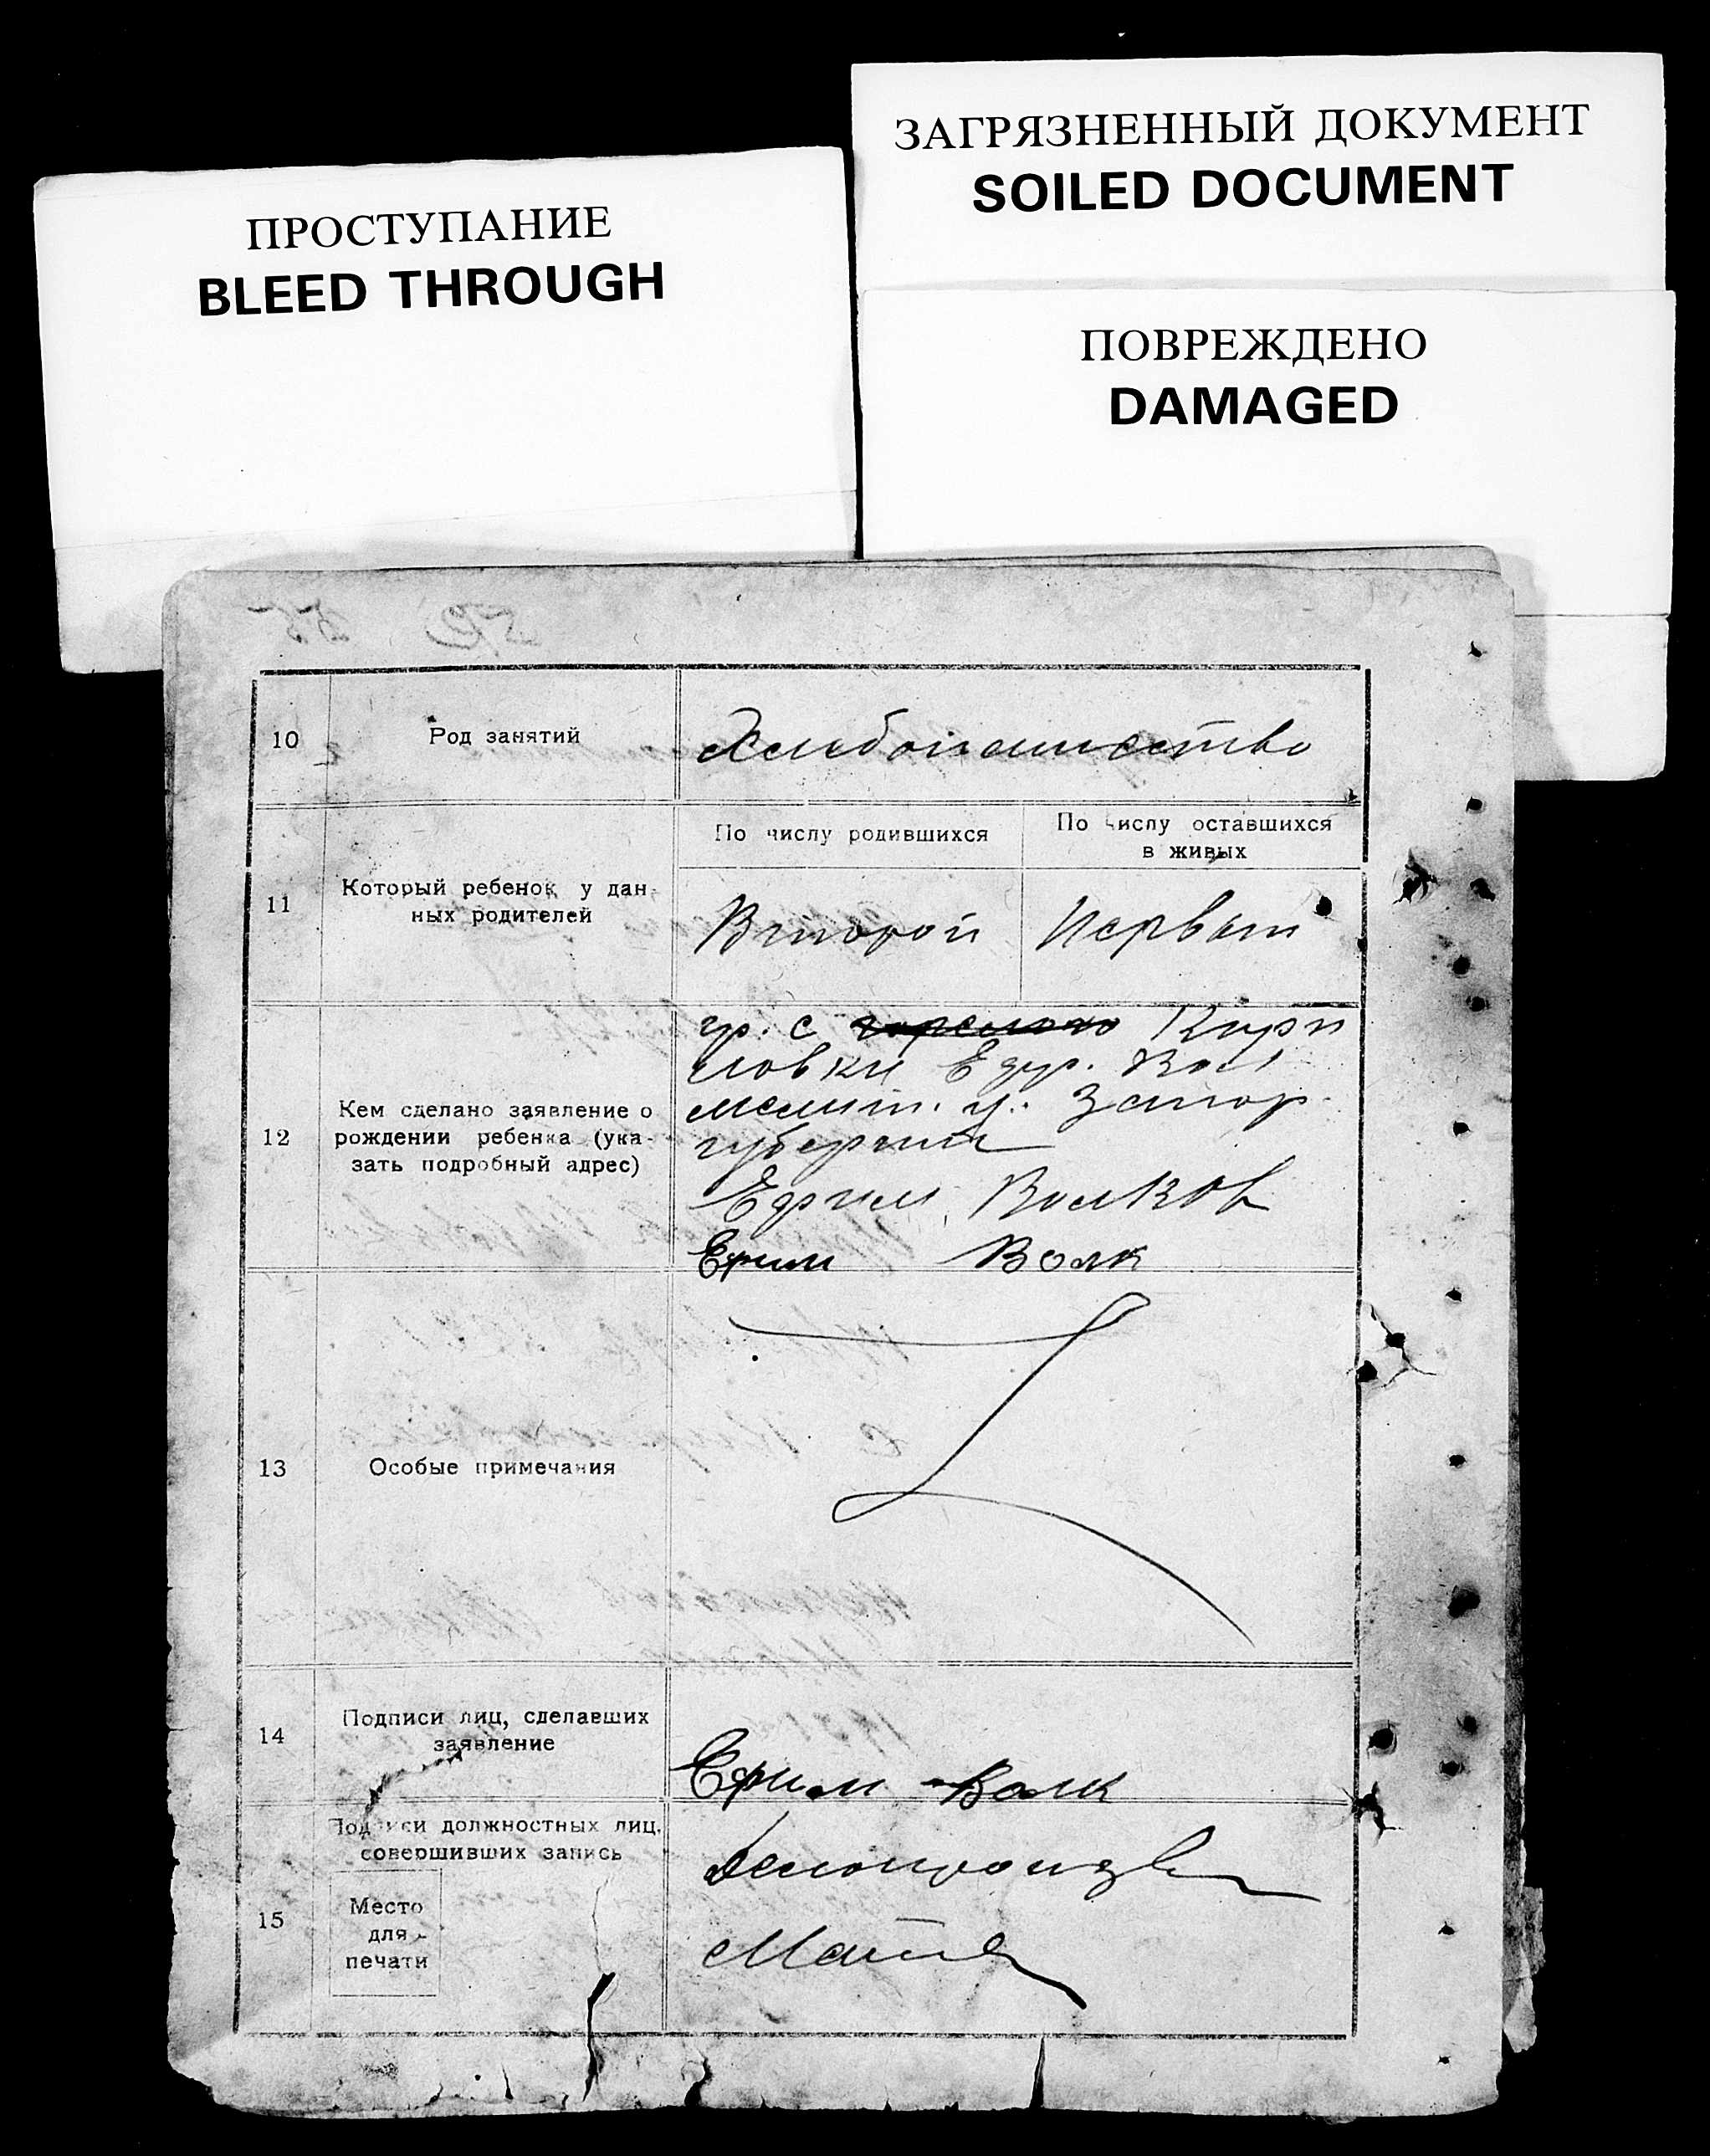 ЗАГРЯЗНЕННЫЙ ДОКУМЕНТ
SOILED DOCUMENT
ПРОСТУПАНИЕ
BLEED THROUGH
ПОВРЕЖДЕНО
DAMAGED
10
Род занятий
Хлебопашество
11
Который ребенок у дан-
ных родителей
По числу родившихся
По числу оставшихся
в живых
Второй
Первый
12
Кем сделано заявление о
рождении ребенка (ука-
зать подробный адрес)
гр. с Кири
ловки Вол
мелит. у. Запор.
губернии
Ефим Волков
Ефим Волк
13
Особые примечания
14
Подписи лиц, сделавших
заявление
Ефим Волк
15
Подписи должностных лиц,
совершивших запись
Место
для
печати